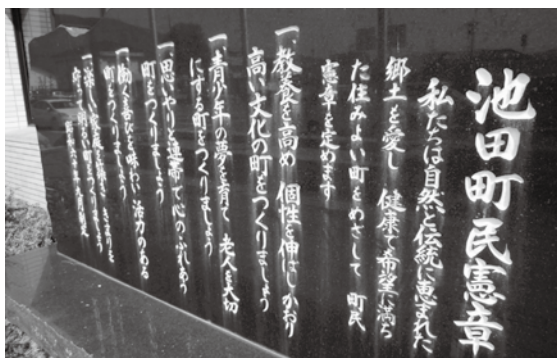 池田町民憲章
私たちは自然と伝統に恵まれた
郷土を愛し 健康で希望に満ち
た住みよい町をめざして 町民
憲章を定めます
一、教養を高め 個性を伸ばし かおり
高い文化の町をつくりましょう
一、青少年の夢を育て 老人を大切
にする町をつくりましょう
一、思いやりと連帯で心のふれあう
町をつくりましょう
一、働く喜びを味わい 活力のある
町をつくりましょう